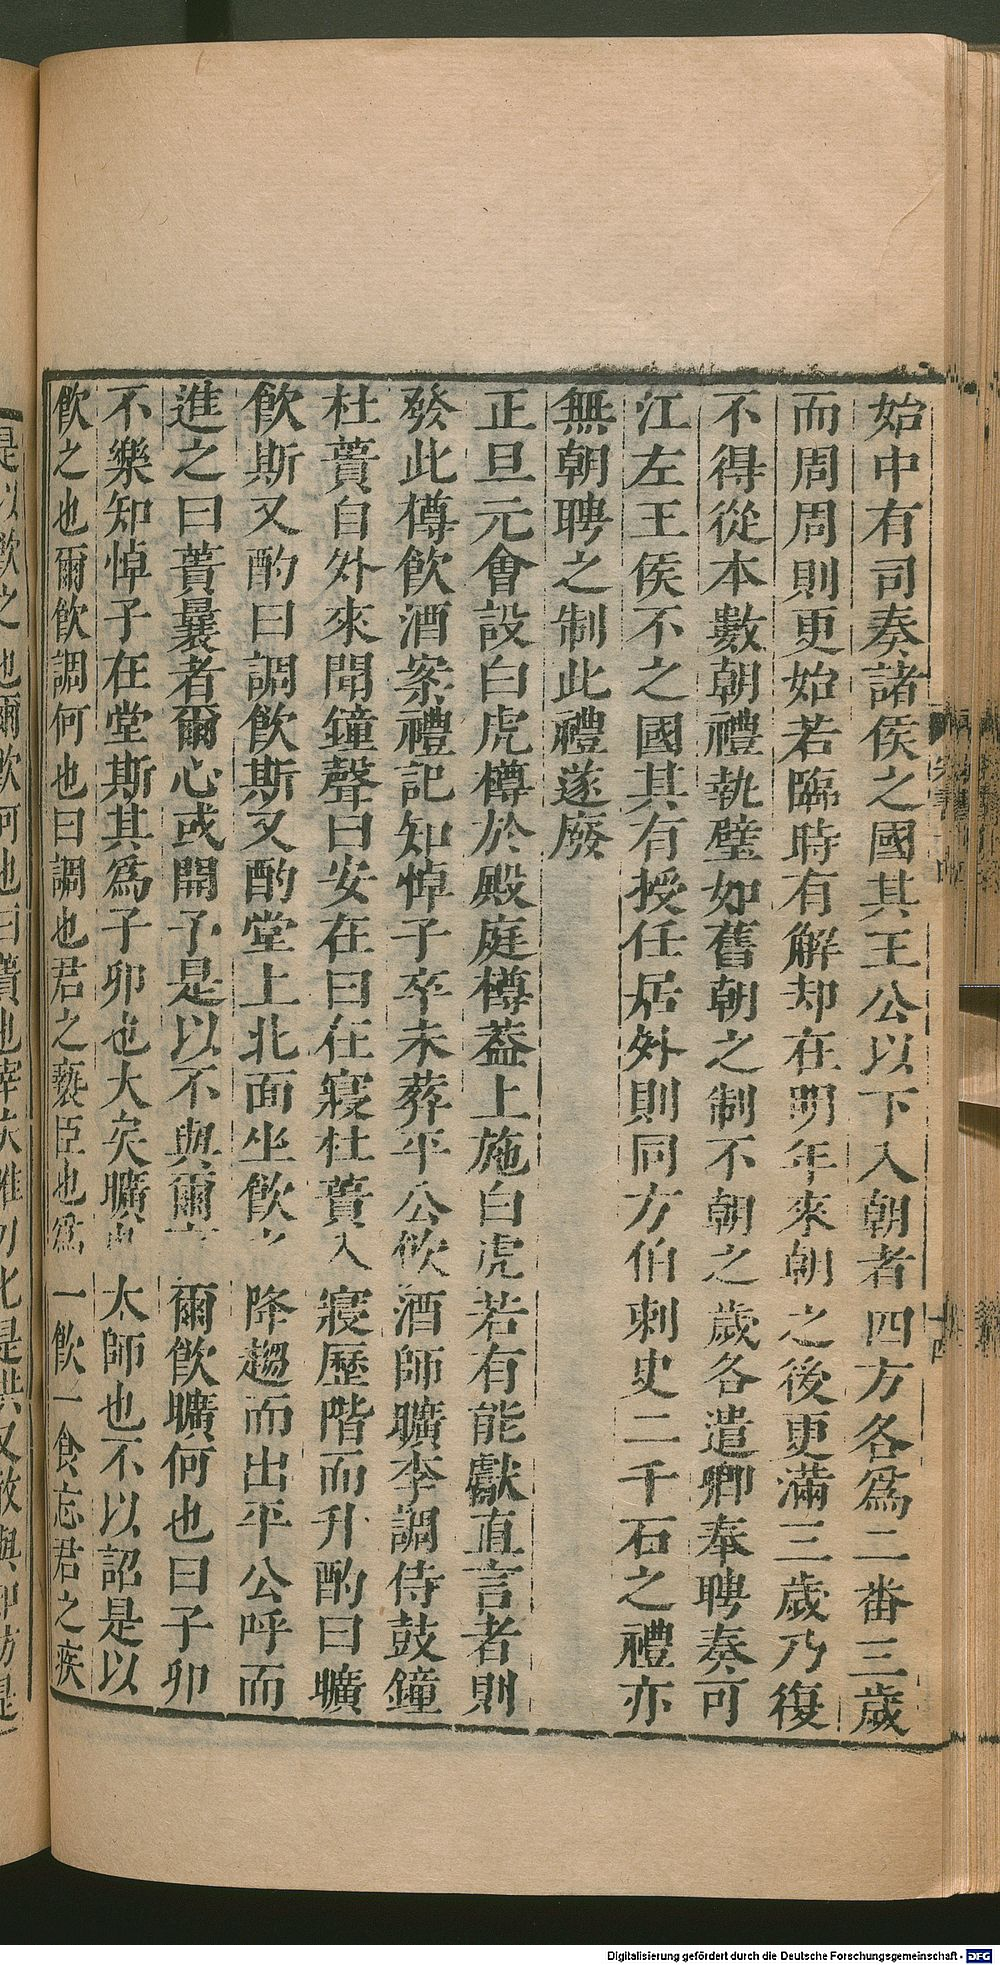 始中有司奏諸侯之國其王公以下入朝者四方各爲二番三歲
而周周則更始若臨時有解却在明年來朝之後更滿三歲乃復
不得從本數朝禮執璧如舊朝之制不朝之歲各遣卿奉聘奏可
江左王侯不之國其有授任居外則同方伯刺史二千石之禮亦
無朝聘之制此禮遂廢
正旦元會設白虎樽於殿庭樽蓋上施白虎若有能獻直言者則
發此樽飲酒案禮記知悼子卒未葬平公飲酒師曠李調侍鼓鐘
杜蕢自外來聞鐘聲曰安在曰在寢杜蕢入寢歷階而升酌曰曠
飲斯又酌曰調飲斯又酌堂上北面坐飲之降趨而出平公呼而
進之曰蕢曩者爾心或開予是以不與爾言爾飲曠何也曰子卯
不樂知悼子在堂斯其爲子卯也大矣曠也太師也不以詔是以
飲之也爾飲調何也曰調也君之褻臣也爲一飲一食忘君之疾
是以飲之也爾飲何也曰蕢也宰夫唯刀匕是共又敢與知防是
Digitalisierung gefördert durch die Deutsche Forschungsgemeinschaft - DFG